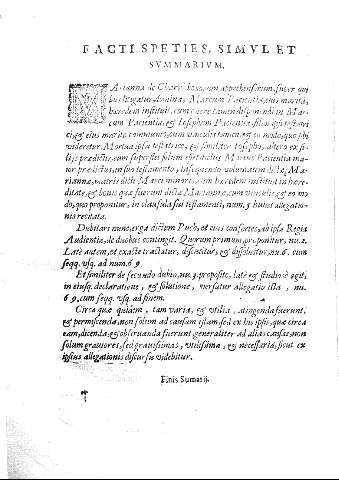 FACTI SPETIES, SIMVL ET
SVMMARIVM.
MArianna de Charr, bonorum
Marcum Pacientia, eius maritũ,
hæredem instituit, cum onere tamen disponendi in Mar-
cum Pacientia, & Iosephum Pacientia filios ipsi testatri-
ci, & eius marito communes, cum vinculis tamen, & eo modo, quo sibi
videretur. Mortua ipsa testatrice, & similiter Iosepho, altero ex fi-
lijs prædictis, cum superstes filius esset dictus Marcus Pacientia ma-
ior prædictus, in suo testamento, insequendo voluntatem dictæ Mari-
annæ, matris dicti Marci minoris, eum hæredem instituit in hæredi-
tate, & bonis quæ fuerunt dictæ Mariannæ, cum vinculis, & eo mo-
do, quo proponitur, in clausula sui testamenti, num. 5 huius allegatio-
nis recitata.
Dubitari nunc, erga dictum Puch, et eius consortes, ab ipsa Regia
Audientia, de duobus contingit. Quorum primum, proponitur, nu. 2.
Latè autem, et exactè tractatur, discutitur, & dissoluitur, nu. 6. cum
seqq. vsq. ad num. 69.
Et similiter de secundo dubio, nu. 3. proposito, latè & studiosè agit,
in eiusq. declaratione, & solutione, versatur allegatio ista, nu.
69. cum seqq. vsq. ad finem.
Circa quæ quidem, tam varia, & vtilia, attingenda fuerunt,
& permiscenda, non solum ad causam istam, sed ex his ipsis, quæ circa
eam, dicenda, & obseruanda fuerunt, generaliter ad alias causas, non
solum grauiores, sed grauissimas, vtilissima, & necessaria, sicut ex
ipsius allegationis discursu videbitur.
Finis Sumarij.